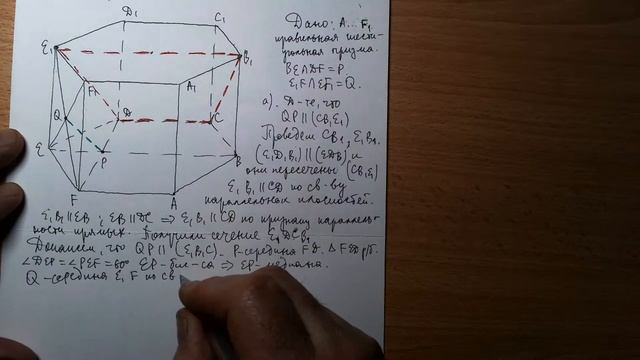 D₁
C₁
E₁
B₁
F₁
A₁
Q
D
C
E
P
B
F
A
Дано: A... F₁
правильная шести-
угольная призма.
BE∩DF=P
E₁F∩EF₁=Q.
а). Д-те, что
QP ∥ (CB₁E₁)
Проведем CB₁, E₁B₁.
(E₁D₁B₁) ∥ (EDB) и
они пересечены (CB₁E₁)
E₁B₁ ∥ CD по св-ву
параллельных плоскостей.
E₁B₁ ∥ EB; EB ∥ DC ⇒ E₁B₁ ∥ CD по признаку параллель-
ности прямых. Получили сечение E₁DCB₁
Докажем, что QP ∥ (E₁B₁C). P-середина FD. △FED р/б.
∠DEP=∠PEF=60° EP-бис-са ⇒ EP-медиана.
Q-середина E₁F по св